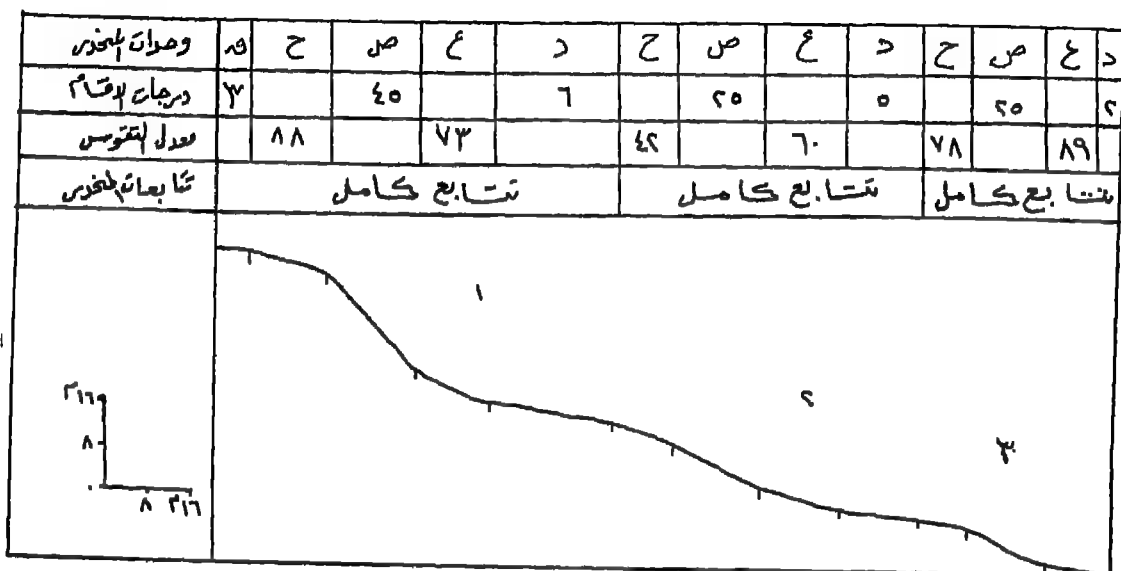 وحدات المنحدر ق ح ص ع د ح ص ع د ح ص ع د
درجات الاقسام ٣ ٤٥ ٦ ٢٥ ٥ ٢٥ ٢
معدل التقوس ٨٨ ٧٣ ٤٢ ٦٠ ٧٨ ٨٩
تتابعات المنحدر تتابع كامل تتابع كامل تتابع كامل
١
٢
٣
١٦م
٨
٠
٨ ١٦م